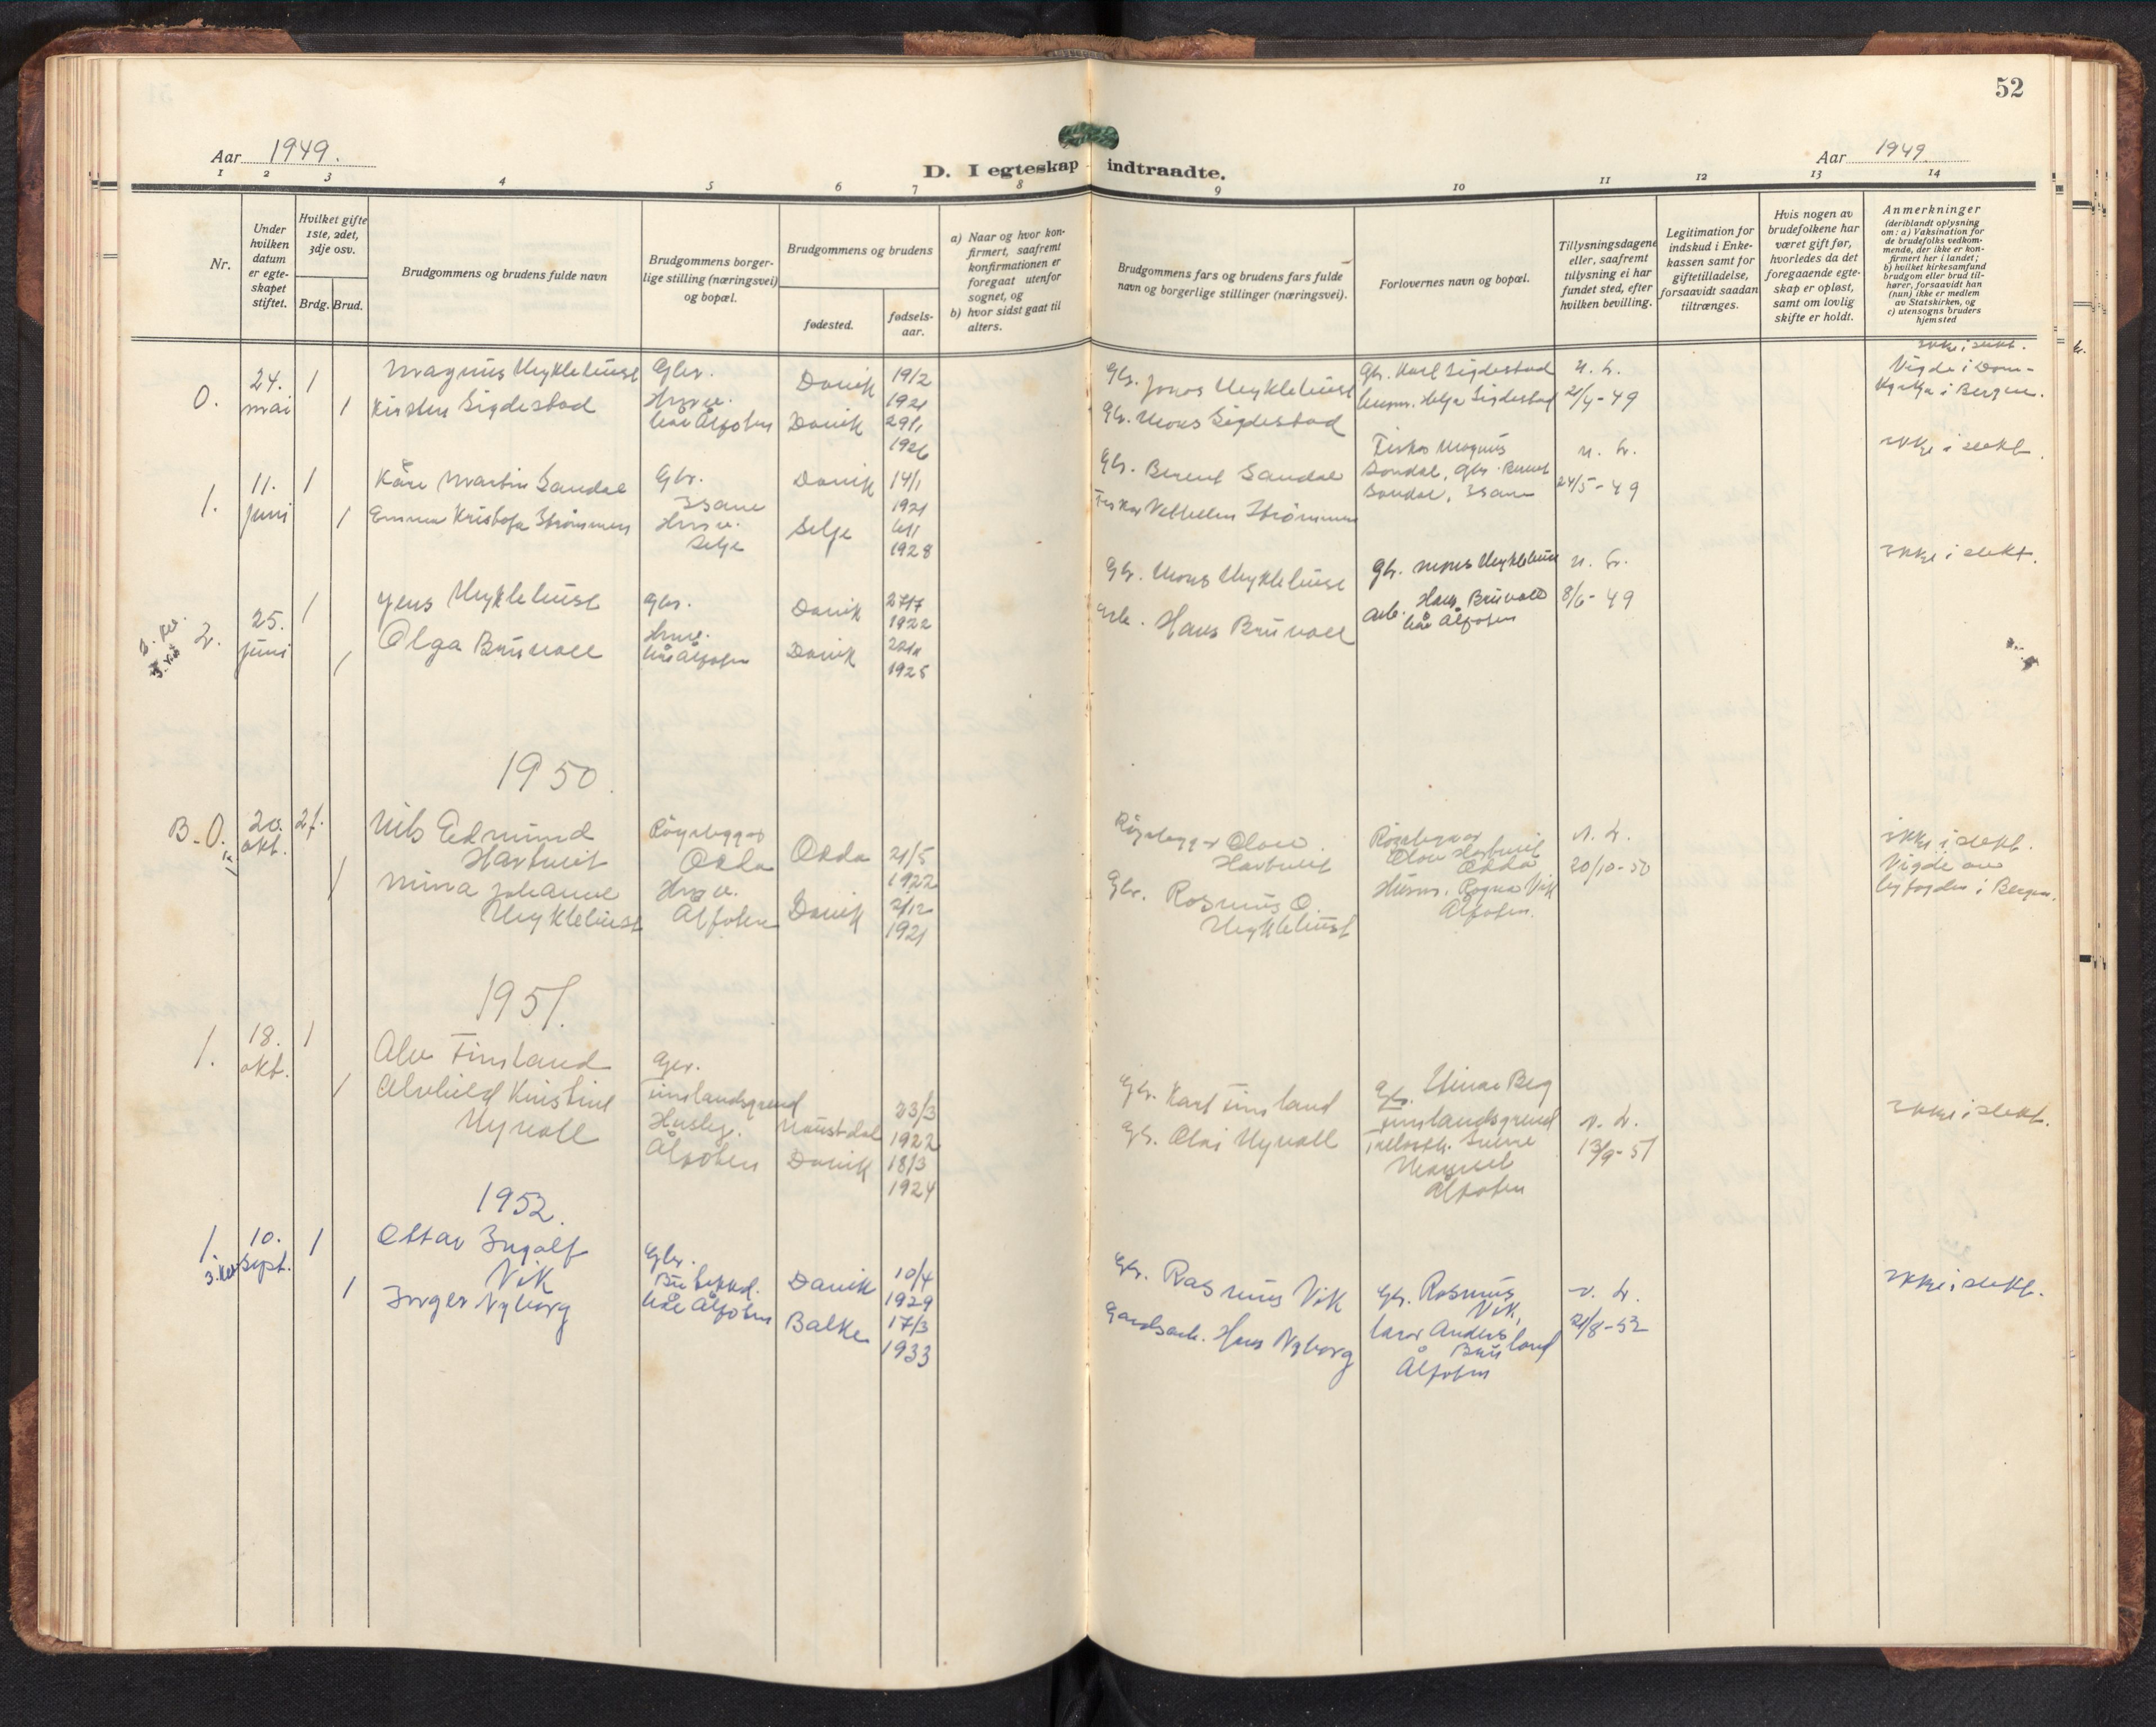 52
Aar 1949.
Aar 1949.
D. I egteskap indtraadte.
1 2 3 4 5 6 7 8 9 10 11 12 13 14
Nr.
Under
hvilken
datum
er egte-
skapet
stiftet.
Hvilket gifte
1ste, 2det,
3dje osv.
Brdg. Brud.
Brudgommens og brudens fulde navn
Brudgommens borger-
lige stilling (næringsvei)
og bopæl.
Brudgommens og brudens
fødested.
fødsels-
aar.
a) Naar og hvor kon-
firmert, saafremt
konfirmationen er
foregaat utenfor
sognet, og
b) hvor sidst gaat til
alters.
Brudgommens fars og brudens fars fulde
navn og borgerlige stillinger (næringsvei).
Forlovernes navn og bopæl.
Tillysningsdagene
eller, saafremt
tillysning ei har
fundet sted, efter
hvilken bevilling.
Legitimation for
indskud i Enke-
kassen samt for
giftetilladelse,
forsaavidt saadan
tiltrænges.
Hvis nogen av
brudefolkene har
været gift før,
hvorledes da det
foregaaende egte-
skap er opløst,
samt om lovlig
skifte er holdt.
Anmerkninger
(deriblandt oplysning
om: a) Vaksination for
de brudefolks vedkom-
mende, der ikke er kon-
firmert her i landet;
b) hvilket kirkesamfund
brudgom eller brud til-
hører, forsaavidt han
(hun) ikke er medlem
av Statskirken, og
c) utensogns bruders
hjemsted
0.
24.
mai
1
1
Magnus Myklebust
Kirsten Sigdestad
Gbr.
Ålfoten
Davik
Davik
19/2
1921
29/1
1926
Gb. Jonas Myklebust
Gb. Mons Sigdestad
Gb. Karl Sigdestad
Helga Sigdestad
21/4-49
ikke i slekt.
Vigde i Dom-
kyrkja i Bergen.
1.
11.
juni
1
1
Kåre Martin Sandal
Emma Kristofa Strømmen
Gbr.
Isane
Selje
Davik
Selje
14/1
1921
1928
Gb. Berent Sandal
Fiskar Strømmen
Fiskar Magnus
Sandal, Gbr. Berent
Sandal, Isane
24/5-49
ikke i slekt.
2.
25.
juni
1
1
Jens Myklebust
Olga Bruvoll
Gbr.
Ålfoten
Davik
Davik
27/7
1922
1925
Gb. Mons Myklebust
Arb. Hans Bruvoll
Gb. Mons Myklebust
Arb. Hans Bruvoll
Ålfoten
8/6-49
ikke i slekt.
1950.
B-0.
20.
okt.
2/.
1
Nils Edmund
Hartveit
Mina Johanne
Myklebust
Røyrleggar
Odda
Ålfoten
Odda
Davik
21/5
1922
2/12
1921
Røyrleggar Olav
Hartveit
Gbr. Rasmus O.
Myklebust
Røyrleggar
Olav Hartveit
Odda
Husm. Ragna Vik
Ålfoten.
20/10-50
ikke i slekt.
Vigde av
byfogden i Bergen.
1951.
1.
18.
okt.
1
1
Alv Timsland
Alvhild Kristine
Myvoll
Gbr.
Timslandsgrend
Ålfoten
Naustdal
Davik
23/3
1922
18/3
1924
Gb. Karl Timsland
Gb. Olai Myvoll
Gb. Einar Berg
Timslandsgrend
Ålfoten
13/9-51
ikke i slekt.
1952.
1.
10.
sept.
1
1
Ottar Ingolf
Vik
Inger Nyborg
Gbr.
Ålfoten
Davik
Balke
10/4
1929
17/3
1933
Gb. Rasmus Vik
Gardsarb. Hans Nyborg
Gb. Rasmus
Vik,
Lærar Anders
Bruland
Ålfoten
21/8-52
ikke i slekt.